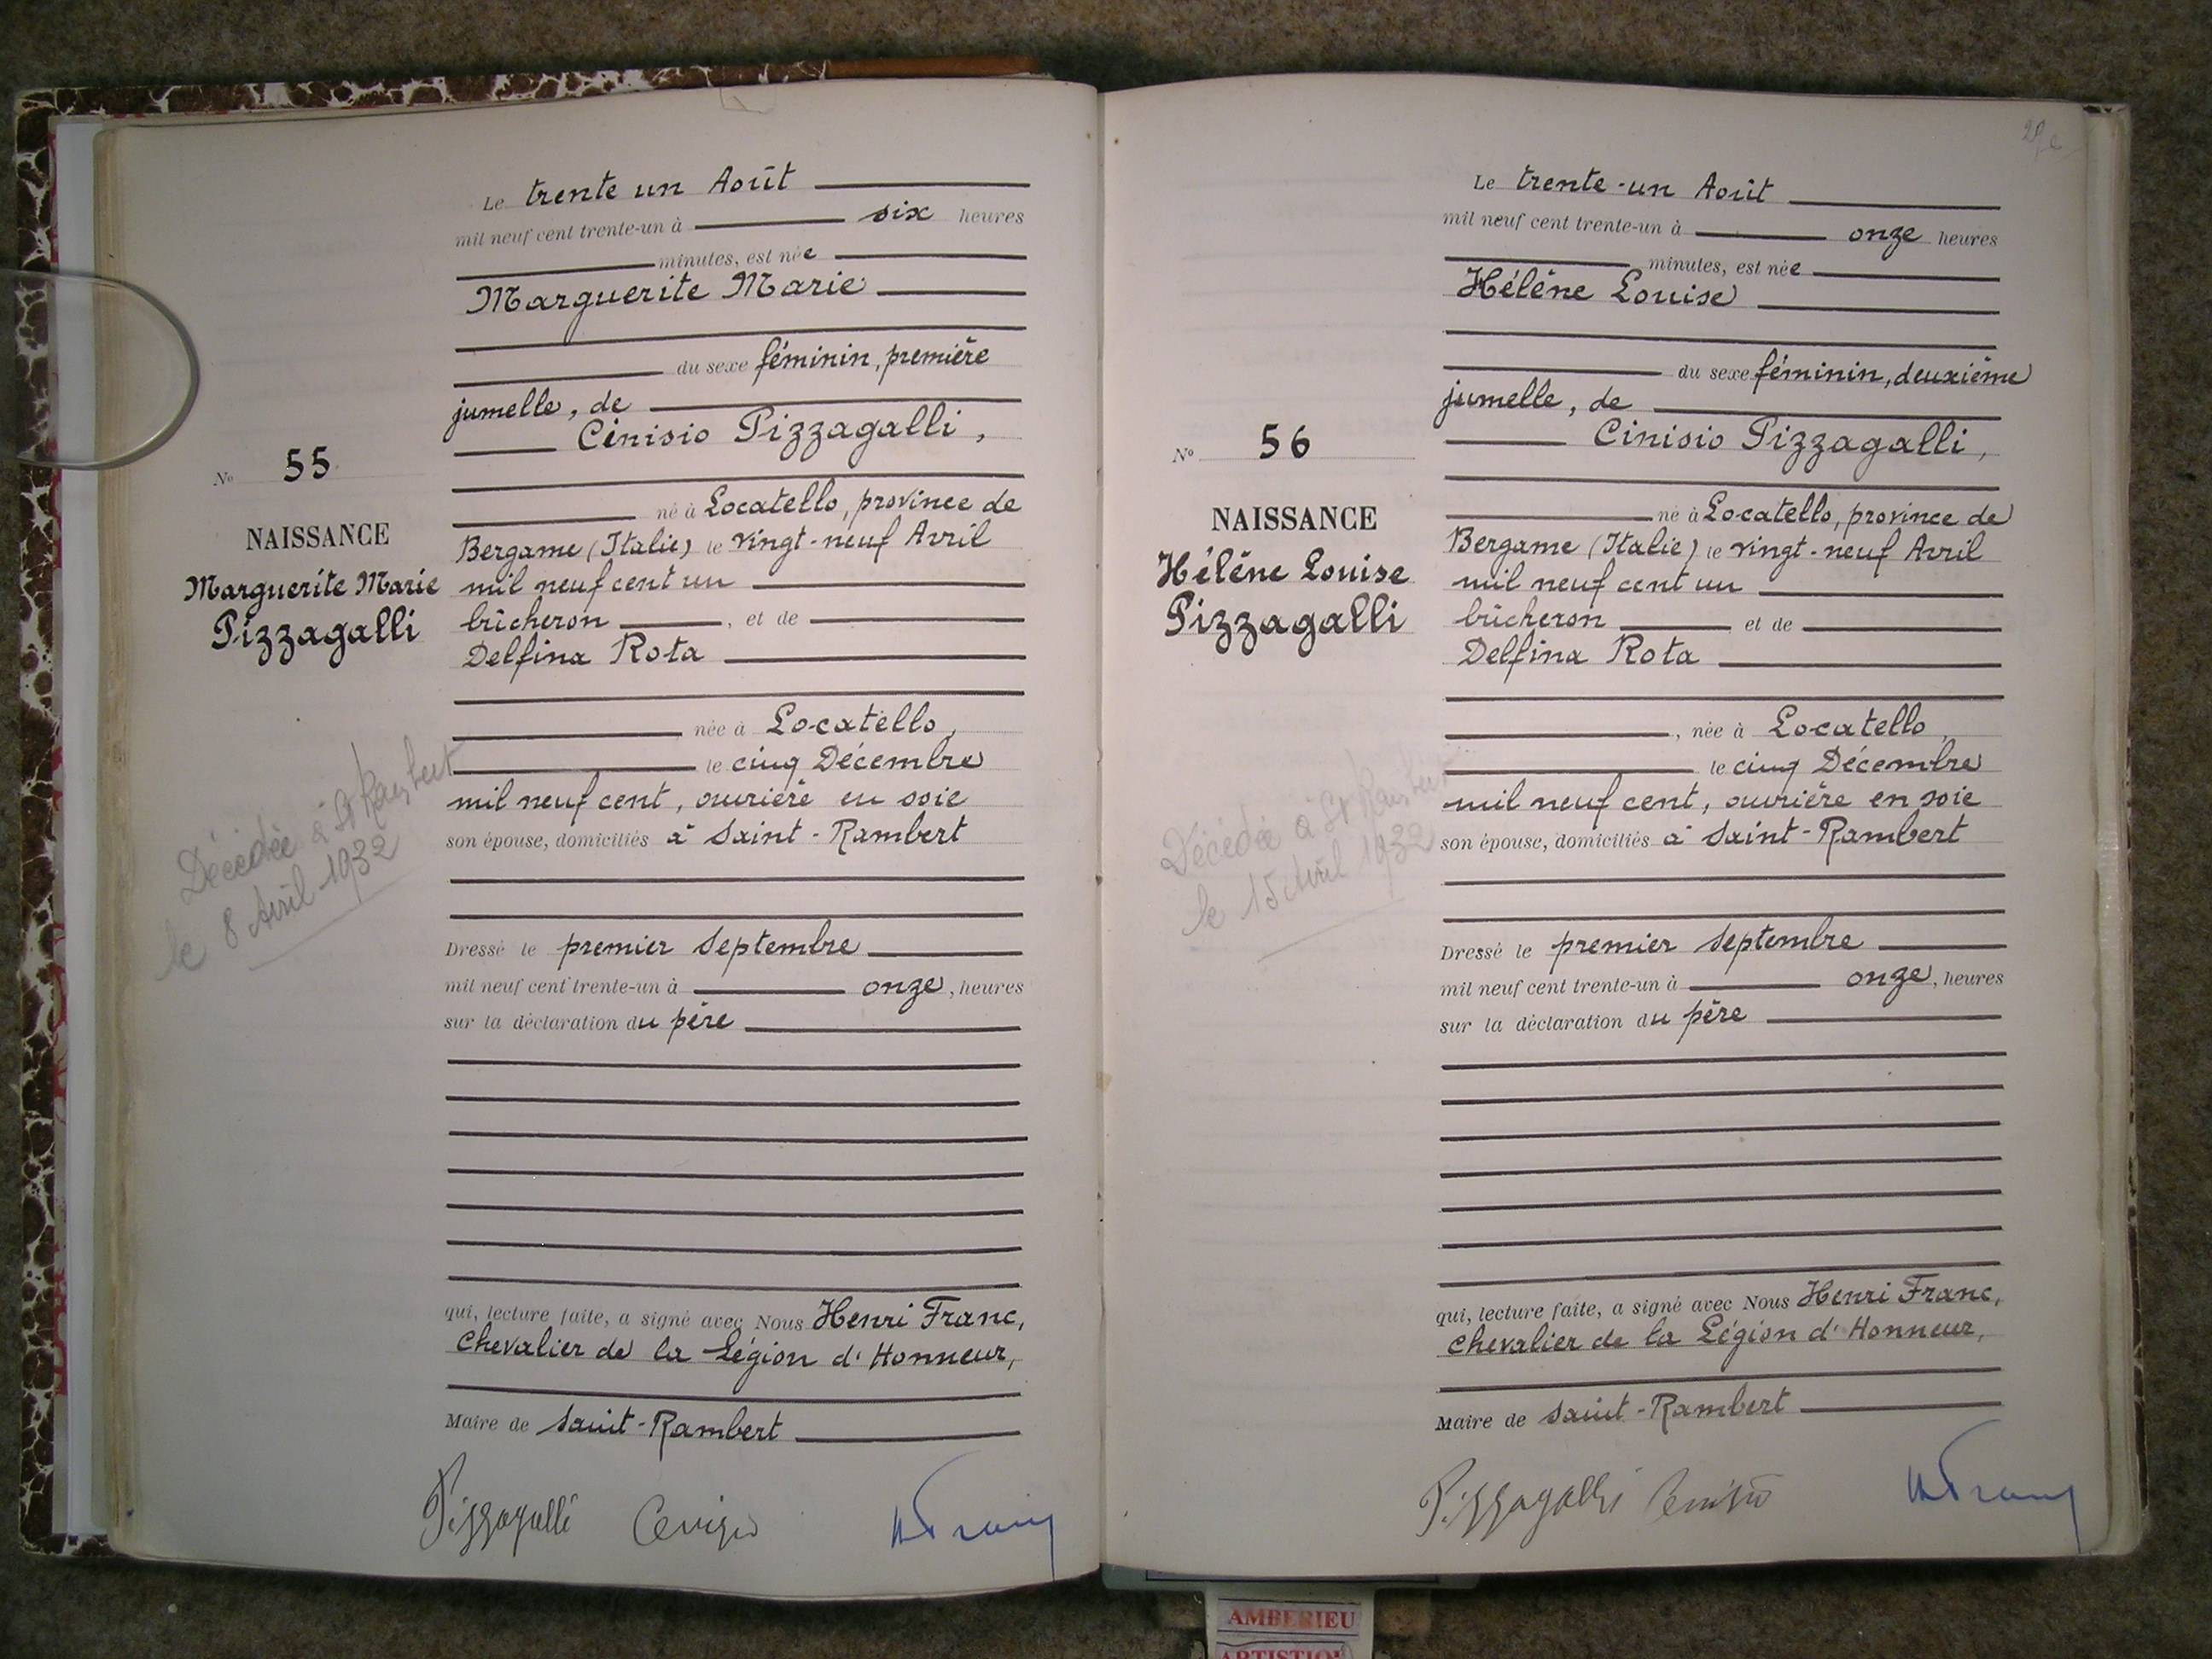 Le trente un Août
mil neuf cent trente-un à six heures
minutes, est née
Marguerite Marie
du sexe féminin, première
jumelle, de
Cinisio Pizzagalli,
né à Locatello, province de
Bergame (Italie) le vingt-neuf Avril
mil neuf cent un
bûcheron, et de
Delfina Rota
née à Locatello,
le cinq Décembre
mil neuf cent, ouvrière en soie
son épouse, domiciliés à Saint-Rambert
Dressé le premier Septembre
mil neuf cent trente-un à onze, heures
sur la déclaration du père
qui, lecture faite, a signé avec Nous Henri Franc,
Chevalier de la Légion d'Honneur,
Maire de Saint-Rambert
Pizzagalli
N° 55
NAISSANCE
Marguerite Marie
Pizzagalli
Décédée à St Rambert
le 8 Avril 1932
Le trente-un Août
mil neuf cent trente-un à onze heures
minutes, est née
Hélène Louise
du sexe féminin, deuxième
jumelle, de
Cinisio Pizzagalli,
né à Locatello, province de
Bergame (Italie) le vingt-neuf Avril
mil neuf cent un
bûcheron et de
Delfina Rota
, née à Locatello,
le cinq Décembre
mil neuf cent, ouvrière en soie
son épouse, domiciliés à Saint-Rambert
Dressé le premier Septembre
mil neuf cent trente-un à onze, heures
sur la déclaration du père
qui, lecture faite, a signé avec Nous Henri Franc,
Chevalier de la Légion d'Honneur,
Maire de Saint-Rambert
Pizzagalli
N° 56
NAISSANCE
Hélène Louise
Pizzagalli
Décédée à St Rambert
le 15 Avril 1932
AMBERIEU